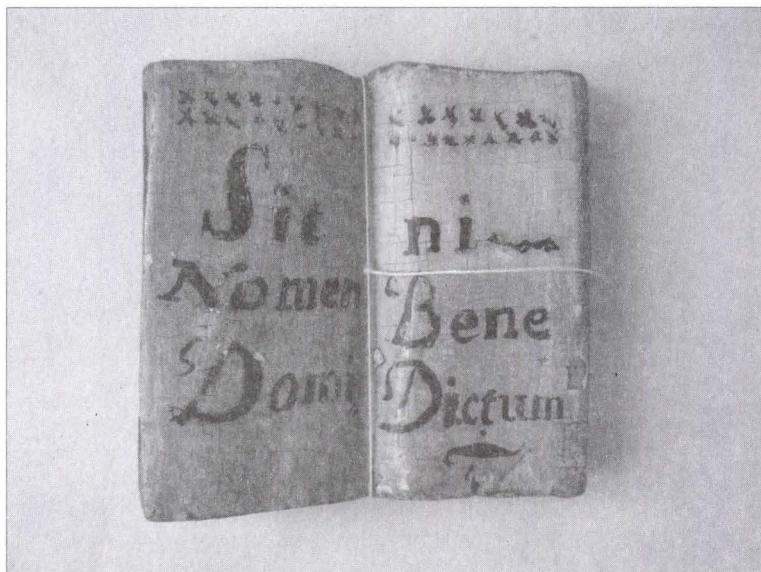 Sit
Nomen
Domi
ni
Bene
Dictum